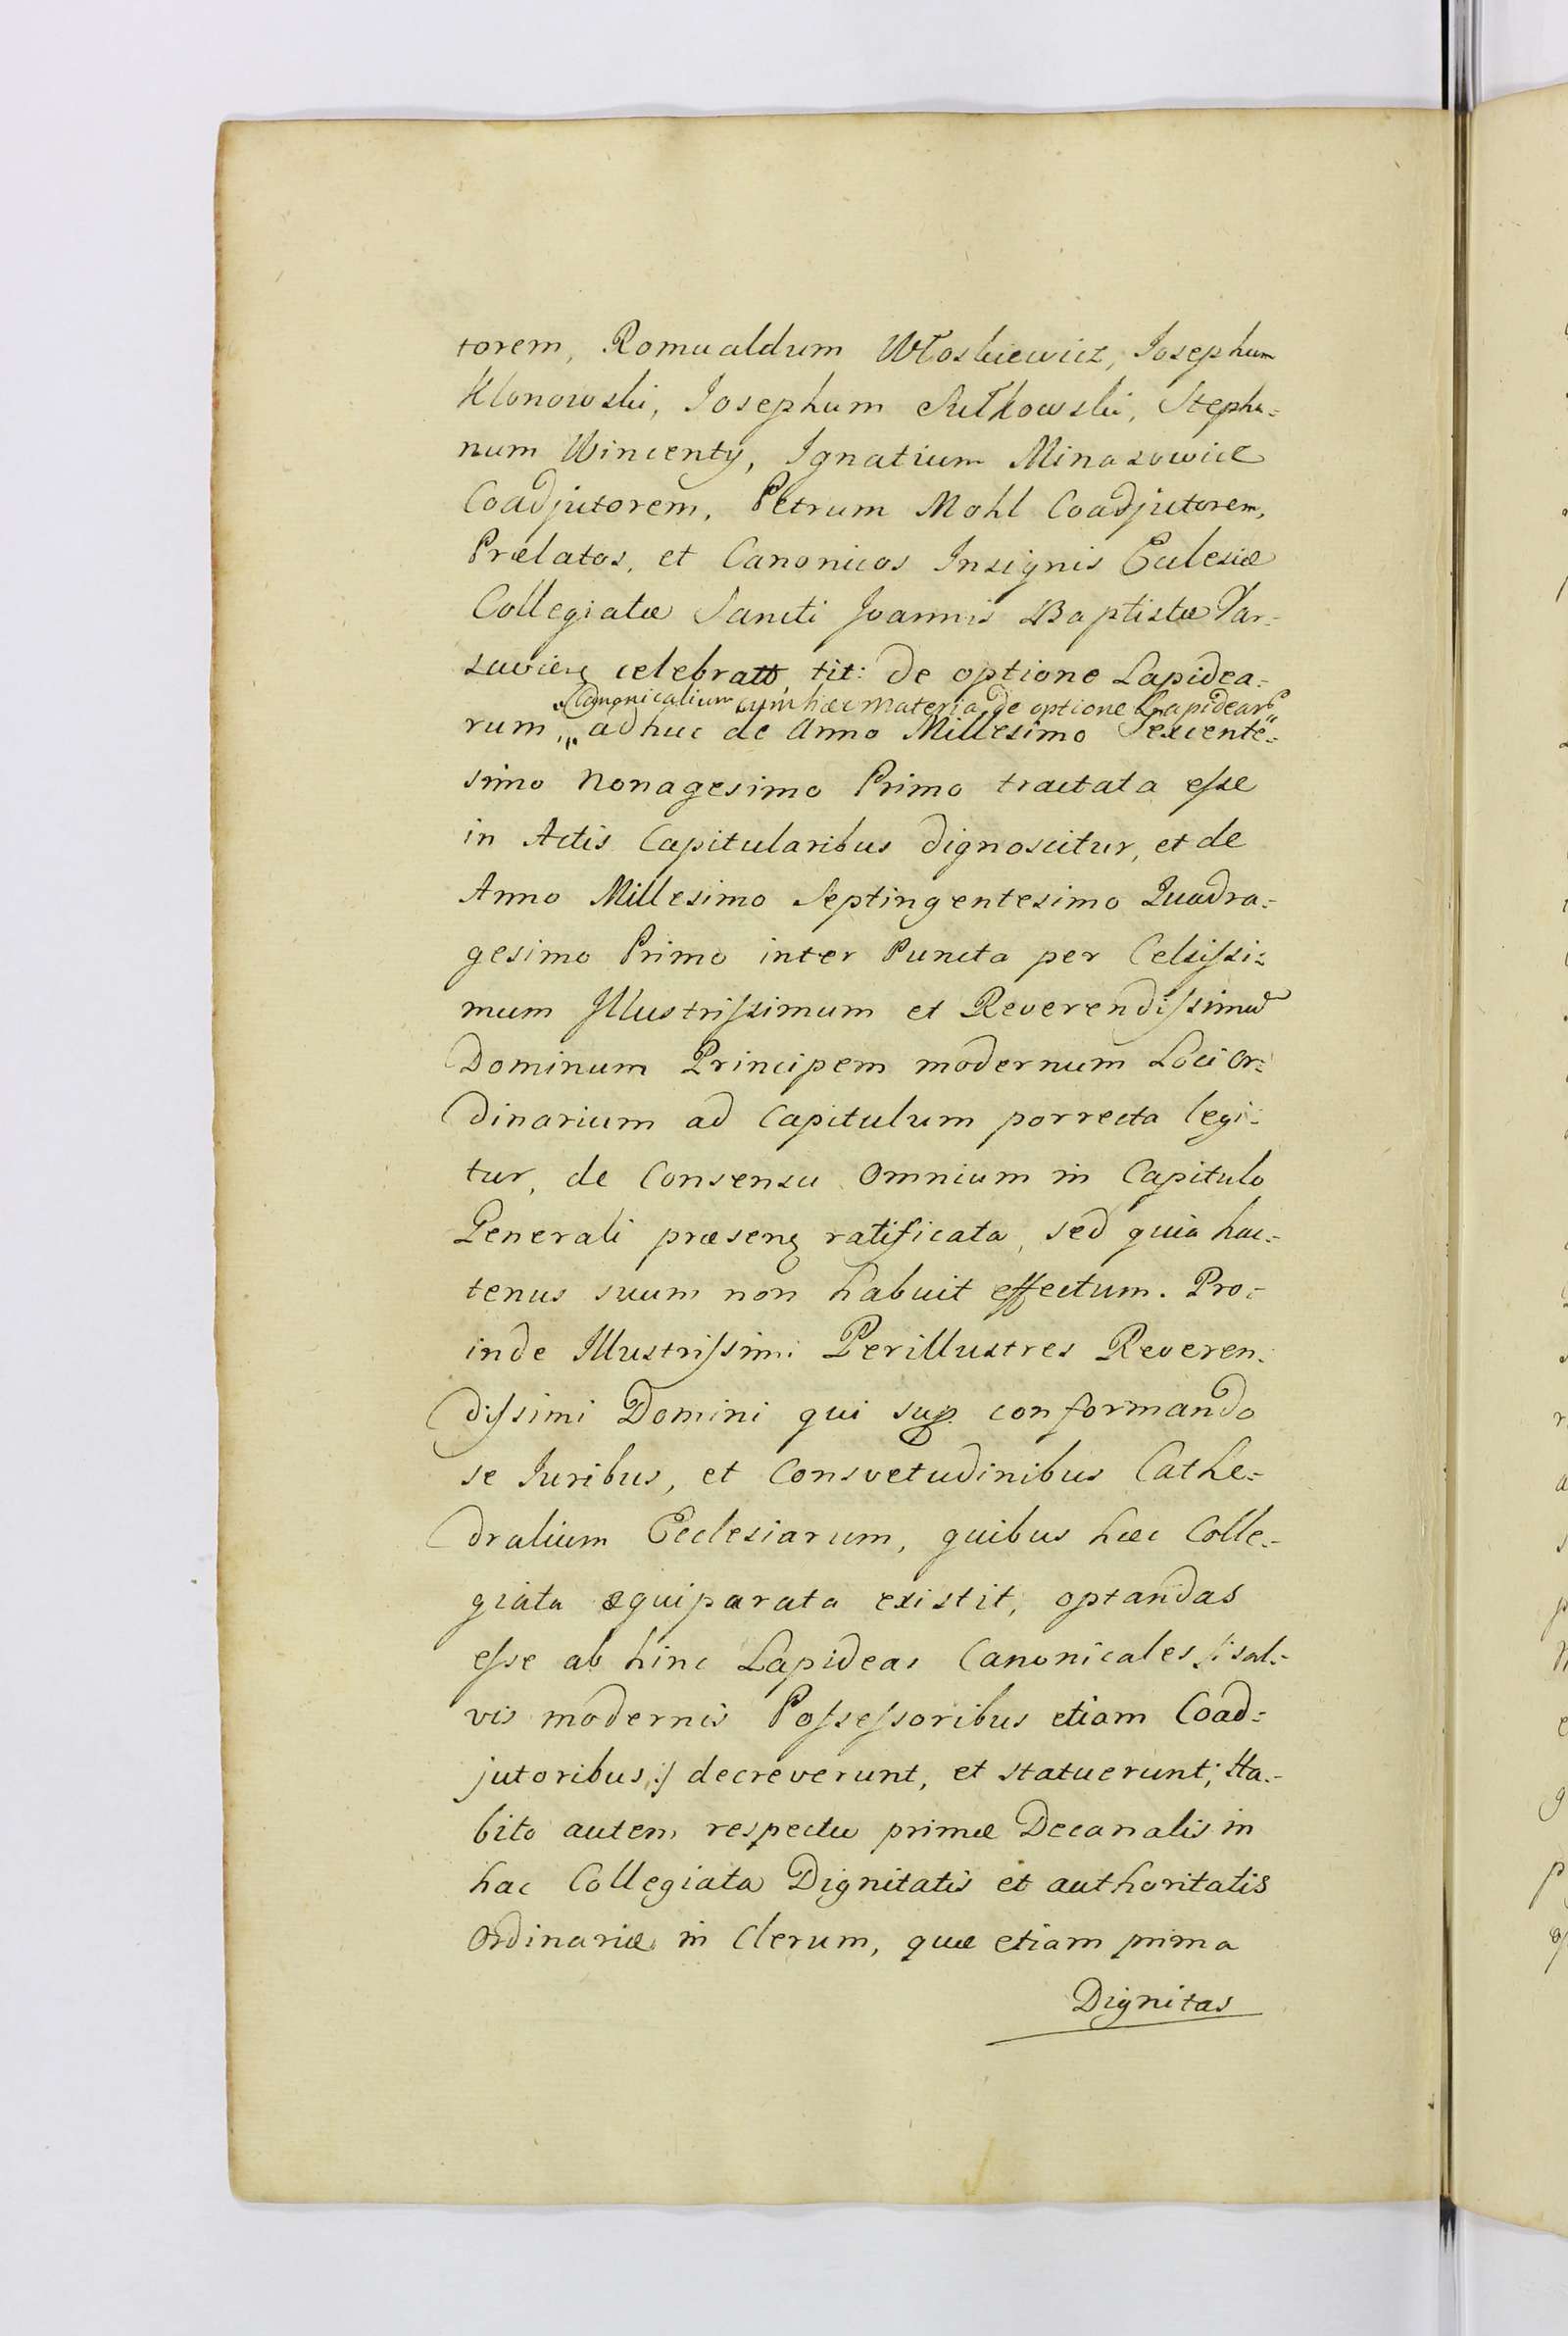 torem, Romualdum Włoskiewicz, Josephum
Klonowski, Josephum Sułkowski, Stepha=
num Wincenty, Ignatium Minasowice
Coadjutorem, Petrum Mohl Coadjutorem,
Prælatos, et Canonicos Insignis Ecclesiæ
Collegiatæ Sancti Joannis Baptistæ Var=
saviens celebratt, tit: de optione Lapidea=
Canonicalium cum hæc materia de optione Lapidearũ
rum, „ adhuc de Anno Millesimo Sexcente=
simo Nonagesimo Primo tractata eſse
in Actis Capitularibus dignoscitur, et de
Anno Millesimo Septingentesimo Quadra=
gesimo Primo inter Puncta per Celsiſsi=
mum Illustriſsimum et Reverendiſsimũ
Dominum Principem modernum Loci Or=
dinarium ad Capitulum porrecta legi=
tur, de Consensu Omnium in Capitulo
Generali præsens ratificata, sed quia hac=
tenus suum non habuit effectum. Pro=
inde Illustriſsimi Perillustres Reveren=
diſsimi Domini qui sup. conformando
se Iuribus, et Consvetudinibus Cathe=
dralium Ecclesiarum, quibus hæc Colle=
giata æquiparata existit, optandas
eſse ab hinc Lapideas Canonicales /: sal=
vis modernis Poſseſsoribus etiam Coad=
jutoribus, :/ decreverunt, et statuerunt; Ha=
bito autem respectu primæ Decanalis in
hac Collegiata Dignitatis et authoritatis
Ordinariæ in Clerum, quæ etiam prima
Dignitas